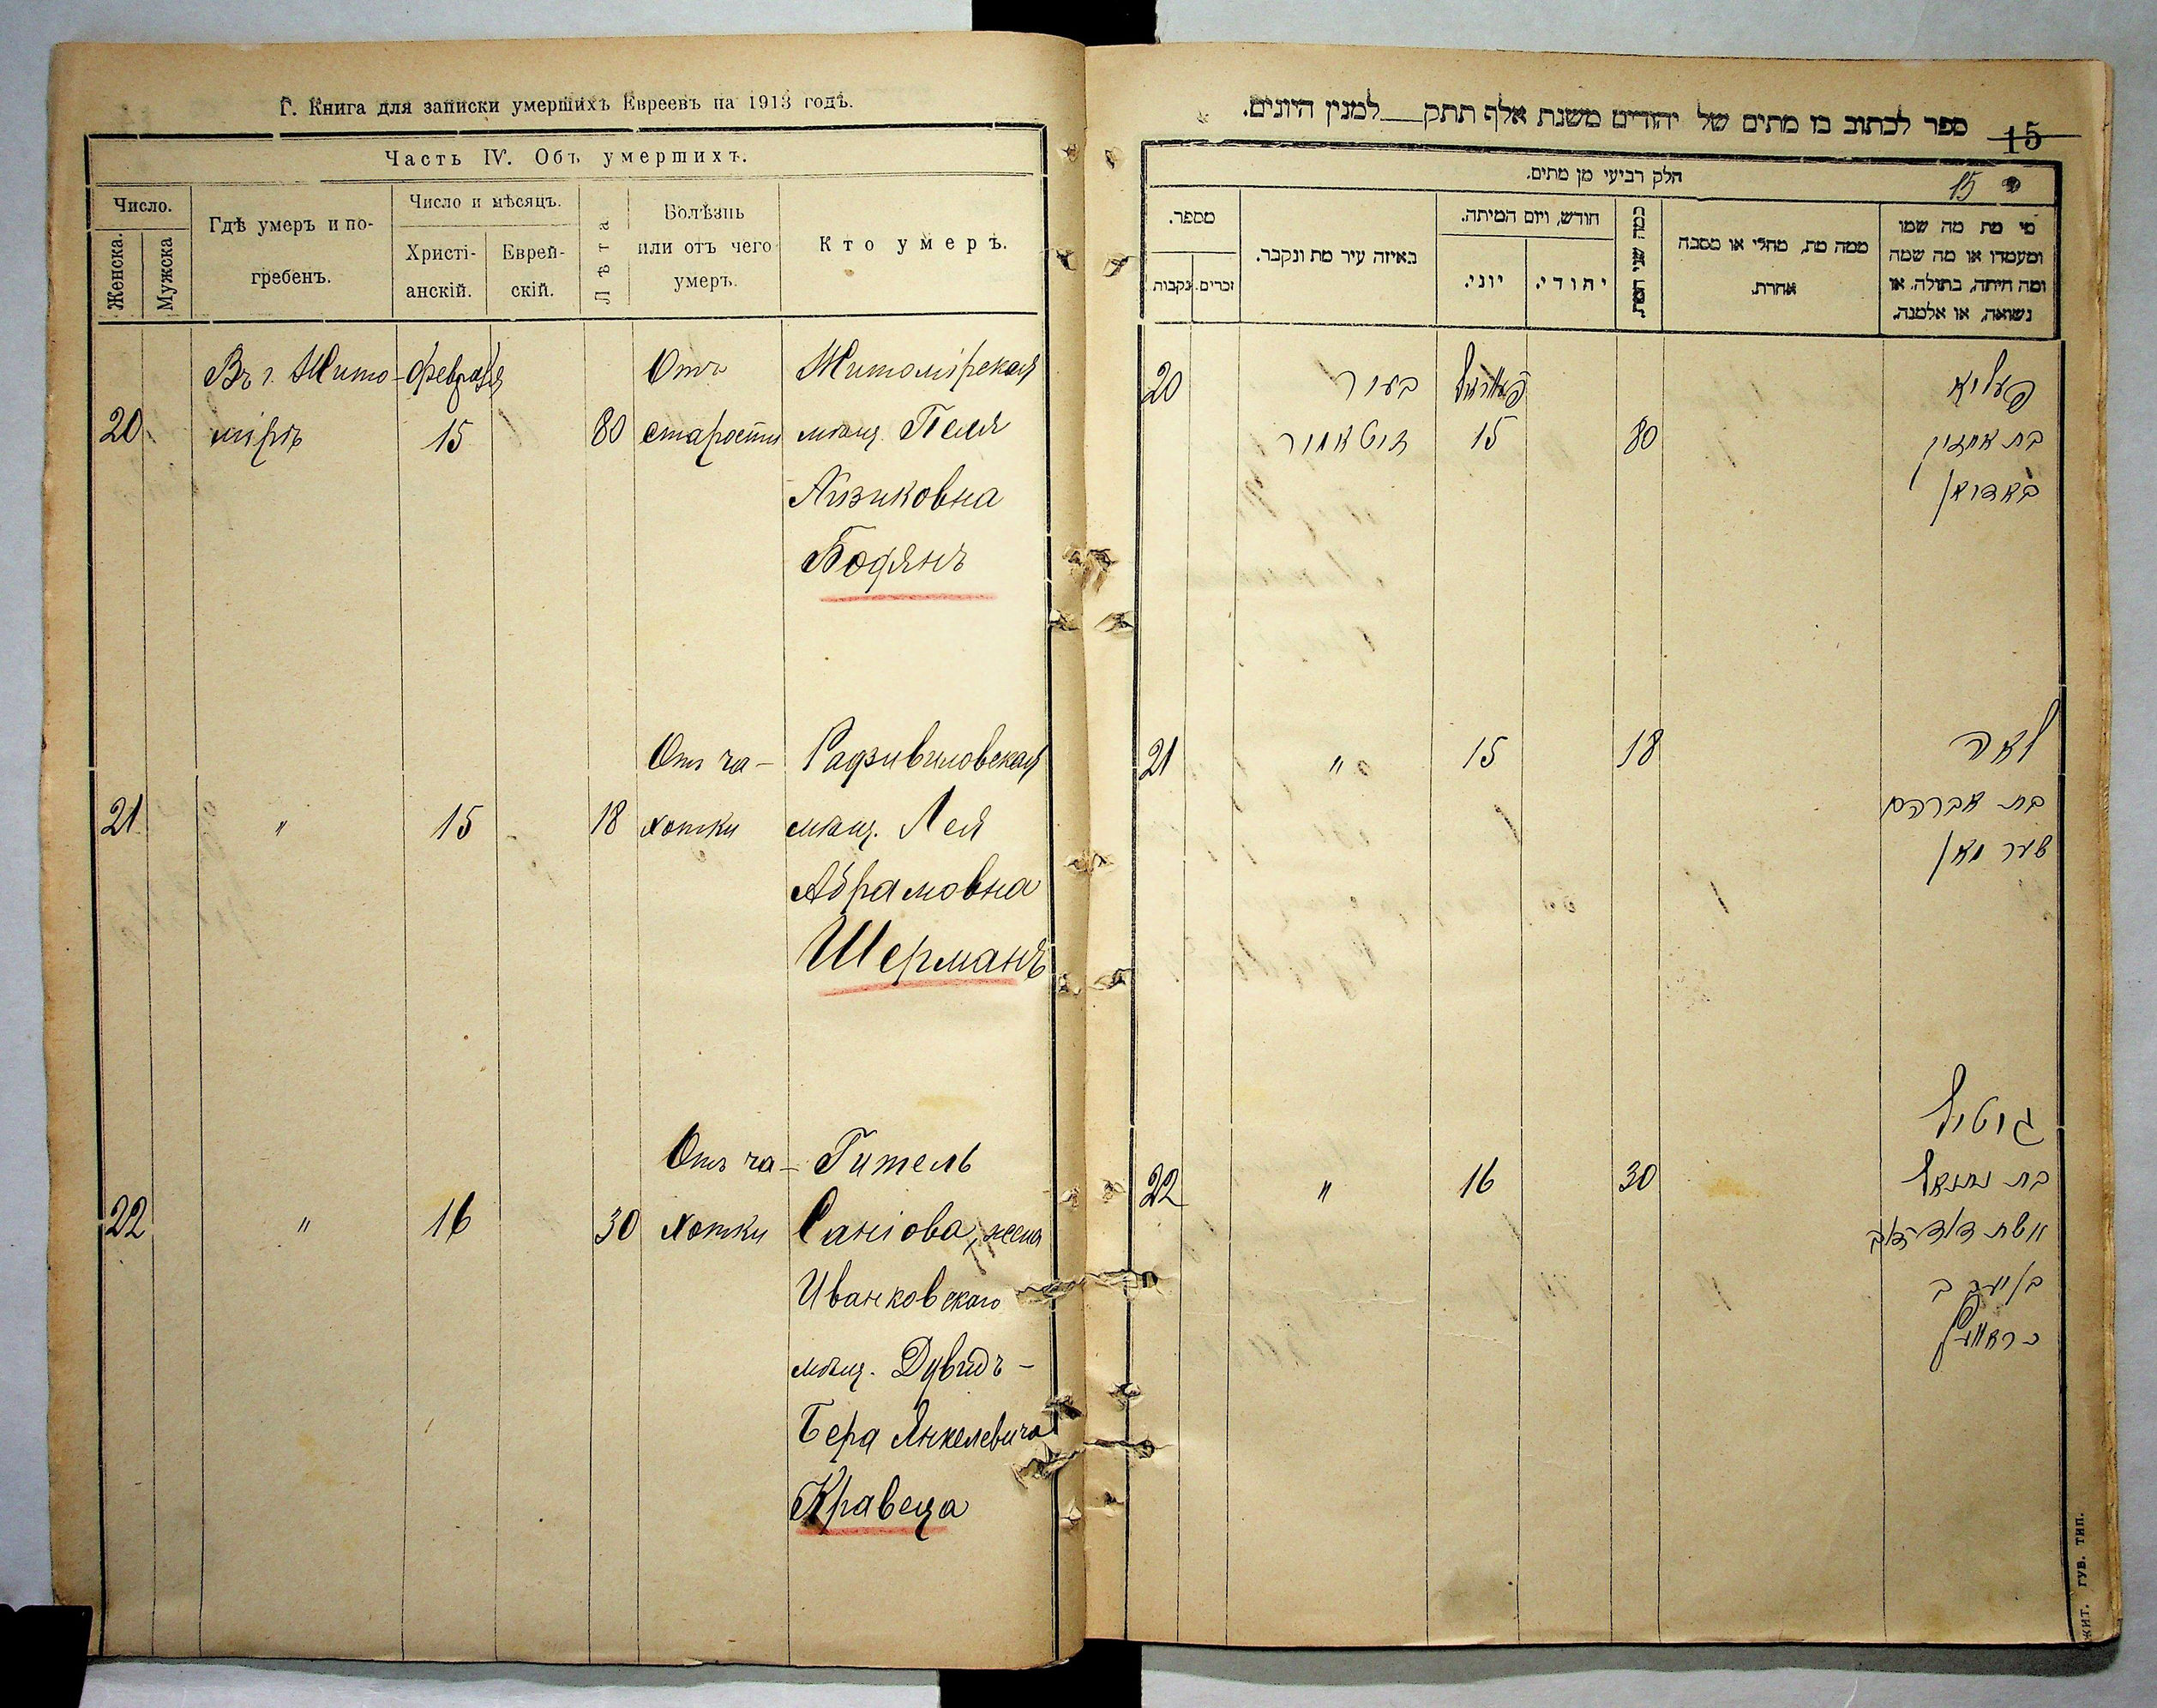 Г. Книга для записки умершихъ Евреевъ на 1913 годъ.
Часть IV. Объ умершихъ.
Число.
Женска.
Мужска
Гдѣ умеръ и по-
гребенъ.
Число и мѣсяцъ.
Христі-
анскій.
Еврей-
скій.
Лѣта
Болѣзнь
или отъ чего
умеръ.
Кто умеръ.
20
Въ г. Жито-
мірѣ
февраля
15
80
Отъ
старости
Житомірская
мѣщ. Песя
Айзиковна
Бодянъ
21
"
15
18
Отъ ча-
хотки
Радзивиловская
мѣщ. Лея
Абрамовна
Шерманъ
22
"
16
30
Отъ ча-
хотки
Гитель
Саніова, жена
Иванковскаго
мѣщ. Дувидъ-
Бера Янкелевича
Кравеца
ספר לכתוב בו מתים של יהודים משנת אלף תתק למנין היונים.
15
חלק רביעי מן מתים.
15
מספר.
נקבות.
זכרים.
באיזה עיר מת ונקבר.
חודש, ויום המיתה.
יוני.
יהודי.
כמה שני המת
ממה מת, מחלי או מסבה
אחרת.
מי מת מה שמו
ומעמדו או מה שמה
ומה היתה, בתולה, או
נשואה, או אלמנה.
20
בעיר
זיטאמיר
15
80
בת אייזיק
באדיאן
21
"
15
18
לאה
בת אברהם
שערמאן
22
"
16
30
גיטיל
בת
אשת דוד בער
בן יעקב
ЖИТ. ГУБ. ТИП.